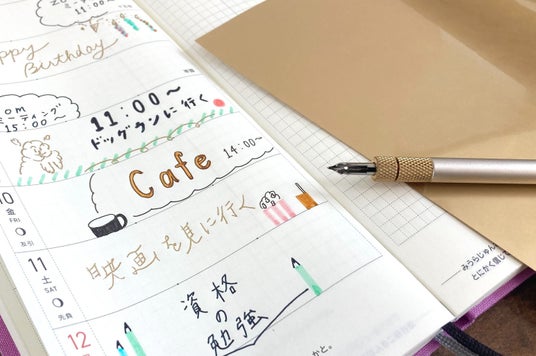 11:00～
Happy
Birthday
ZOOM
ミーティング
15:00～
11:00～
ドッグランに行く
10
金
FRI
友引
Cafe
14:00～
11
土
SAT
先負
映画を見に行く
12
資格
の
勉強
みうらじゅん
とにかく信じ
かと。